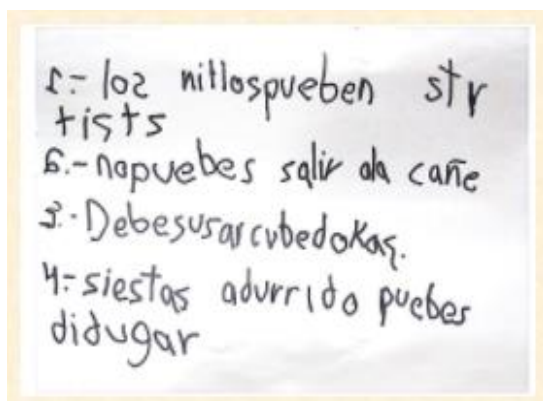 1.- los nillospueben str
tists
2.- nopuebes salir ala cañe
3.- Debesusarcubedokas.
4.- siestas adurrido puebes
didugar